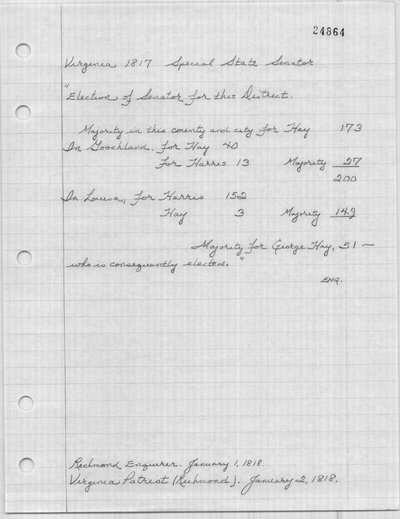 24864
Virginia 1817 Special State Senator
"Election of Senator for this District.
Majority in this county and city for Hay 173
In Goochland, for Hay 40
For Harris 13 Majority 27
200
In Louisa, for Harris 152
Hay 3 Majority 149
Majority for George Hay, 51 —
who is consequently elected."
ENQ.
Richmond Enquirer. January 1, 1818.
Virginia Patriot (Richmond). January 2, 1818.